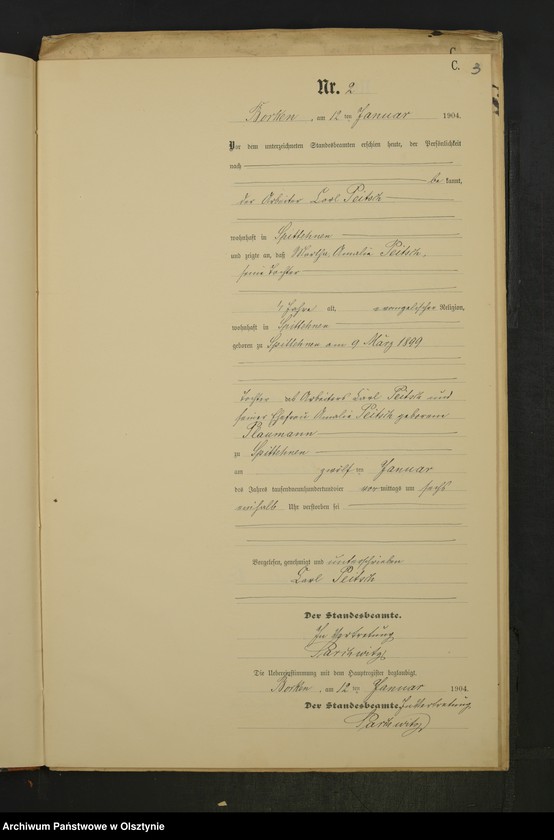 C.
C. 3
Nr. 2
Borken, am 12 ten Januar 1904.
Vor dem unterzeichneten Standesbeamten erschien heute, der Persönlichkeit
nach
be kannt,
der Arbeiter Carl Peitsch
wohnhaft in Spittehnen
und zeigte an, daß Martha Amalie Peitsch,
seine Tochter
4 Jahre alt, evangelischer Religion,
wohnhaft in Spittehnen
geboren zu Spittehnen am 9 März 1899
Tochter des Arbeiters Carl Peitsch und
seiner Ehefrau Amalie Peitsch geborene
Plaumann
zu Spittehnen
am zwölf ten Januar
des Jahres tausendneunhundertundvier vor mittags um sechs
einhalb Uhr verstorben sei
Vorgelesen, genehmigt und unterschrieben
Carl Peitsch
Der Standesbeamte.
In Vertretung
Die Uebereinstimmung mit dem Hauptregister beglaubigt.
Borken, am 12 ten Januar 1904.
Der Standesbeamte. In Vertretung
Archiwum Państwowe w Olsztynie